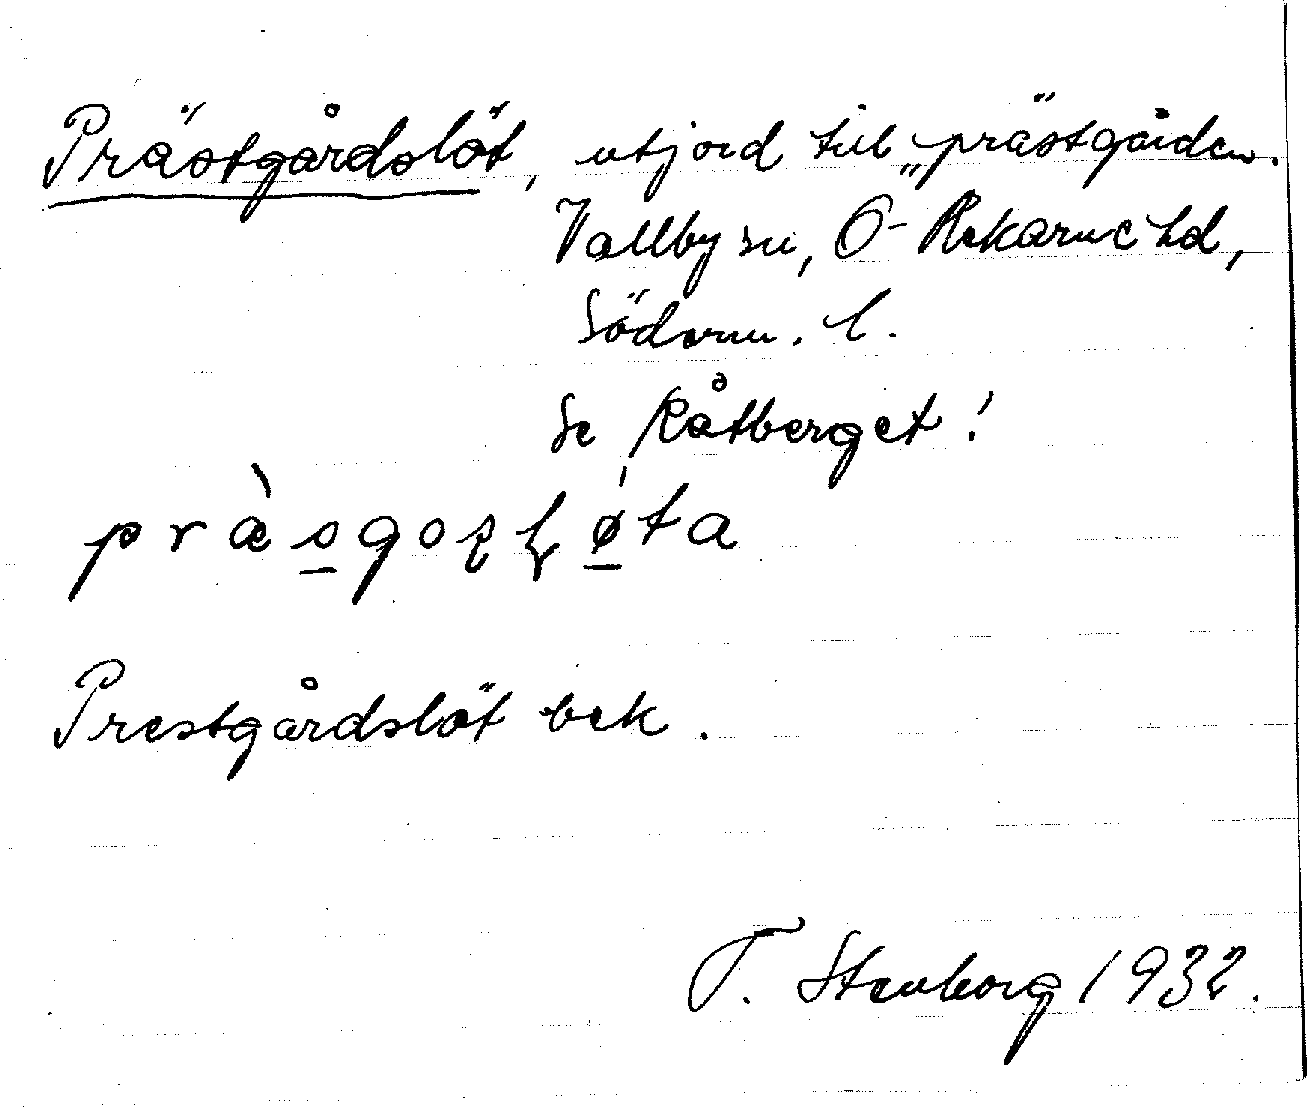 Prästgårdslöt, utjord till „prästgården".
Vallby sn, Ö-Rekarne hd,
Söderm. l.
Se Råtberget!
præ̀s̱goʂɭǿ̱ta
Prestgårdslöt bek.
T. Stenborg 1932.